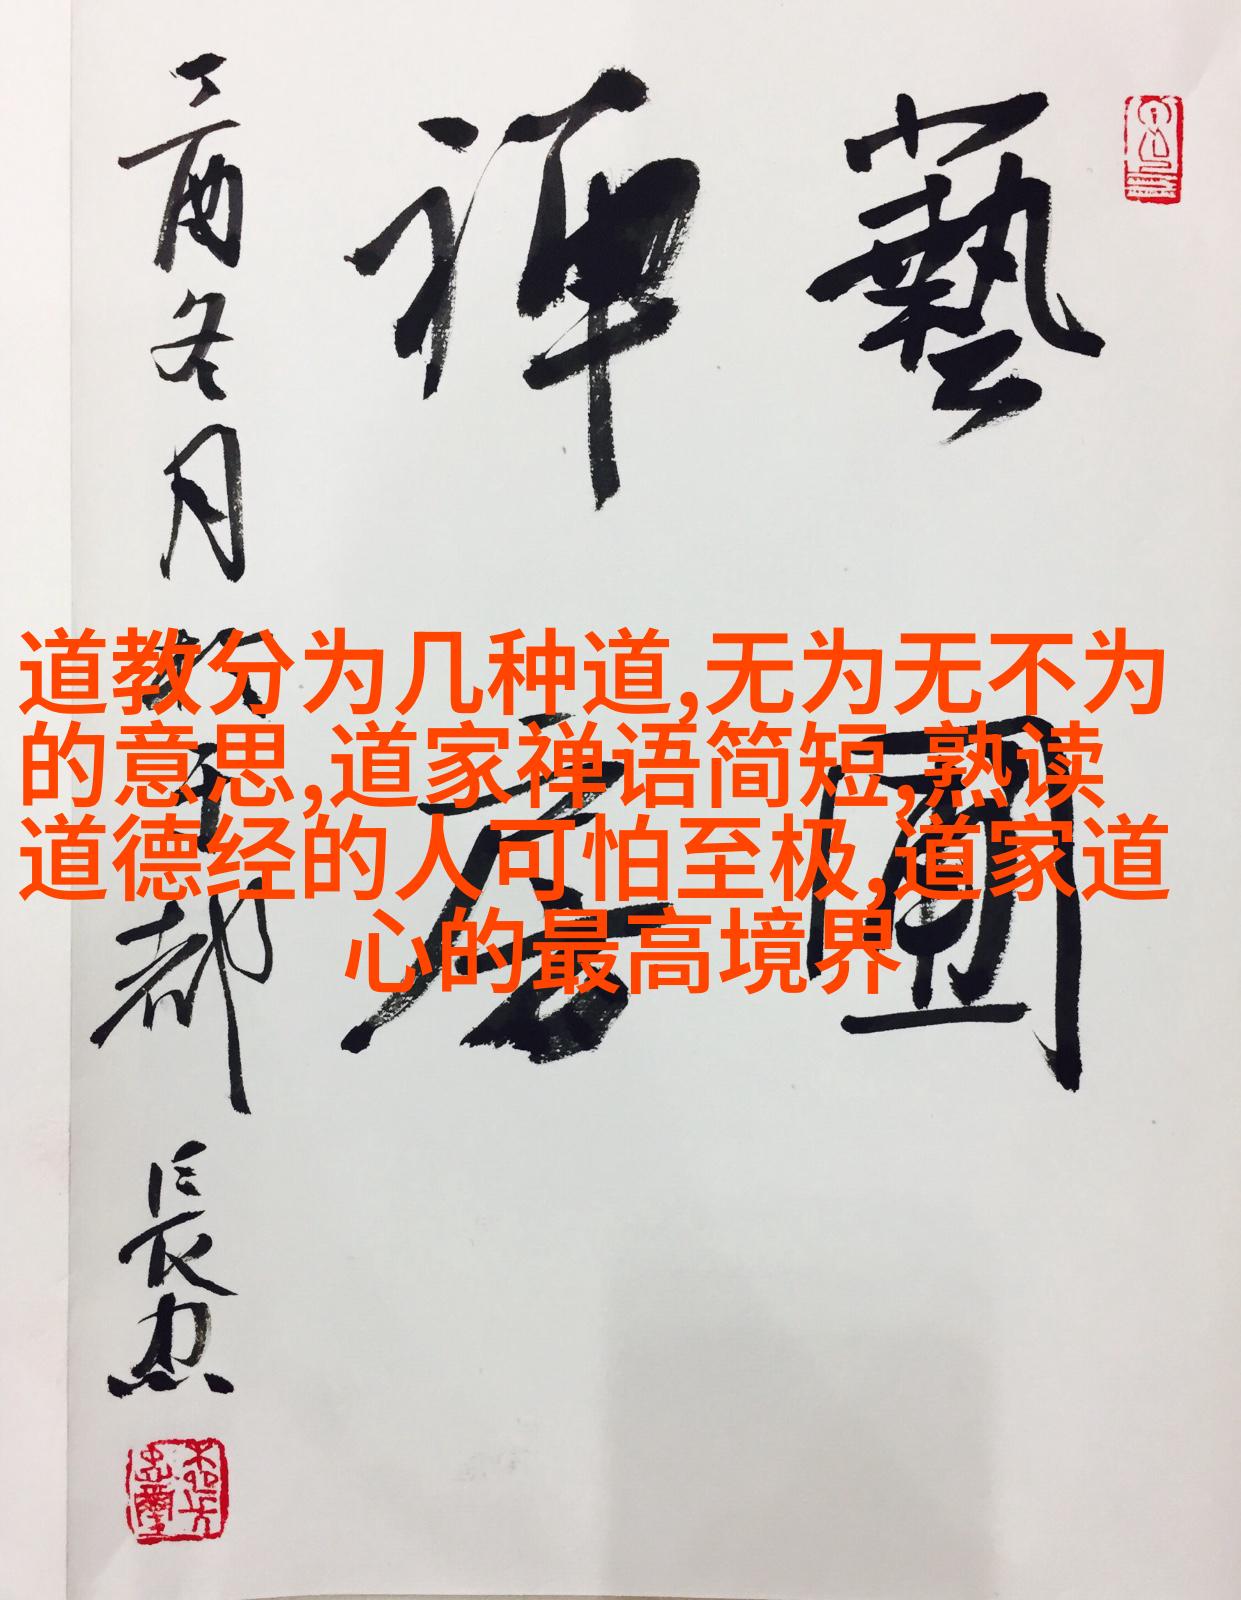 藝圃
禪房
丁酉冬月
都
長忠
道教分为几种道,无为无不为
的意思,道家禅语简短,熟读
道德经的人可怕至极,道家道
心的最高境界